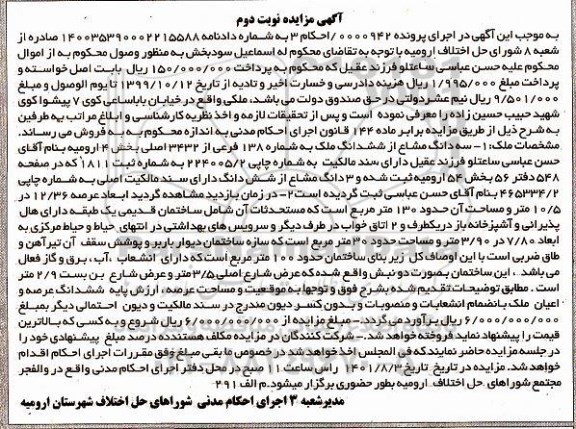 آگهی مزایده نوبت دوم
به موجب این آگهی در اجرای پرونده ۰۰۰۰۹۴۲/احکام ۳ به شماره دادنامه ۱۴۰۰۳۵۳۹۰۰۰۲۲۱۵۵۸۸ صادره از
شعبه ۸ شورای حل اختلاف ارومیه با توجه به تقاضای محکوم له اسماعیل سودبخش به منظور وصول محکوم به از اموال
محکوم علیه حسن عباسی ساعتلو فرزند عقیل که محکوم به پرداخت ۱۵۰/۰۰۰/۰۰۰ ریال بابت اصل خواسته و
پرداخت مبلغ ۱/۹۹۵/۰۰۰ ریال هزینه دادرسی و خسارت اخیر و تادیه از تاریخ ۱۳۹۹/۱۰/۱۲ تا یوم الوصول و مبلغ
۹/۵۰۱/۰۰۰ ریال نیم عشردولتی در حق صندوق دولت می باشد، ملکی واقع در خیابان باباساعی کوی ۷ پیشوا کوی
شهید حبیب حسین زاده را معرفی نموده است و پس از تحقیقات لازمه و اخذ نظریه کارشناسی و ابلاغ مراتب به طرفین
به شرح ذیل از طریق مزایده برابر ماده ۱۴۴ قانون اجرای احکام مدنی به اندازه محکوم به به فروش می رساند.
مشخصات ملک:۱- سه دانگ مشاع از ششدانگ ملک به شماره ۱۳۸ فرعی از ۳۴۳۲ اصلی بخش ۴ ارومیه بنام آقای
حسن عباسی ساعتلو فرزند عقیل دارای سند مالکیت به شماره چاپی ۲۲۴۰۰۵/۲ به شماره ثبت ۱۸۱۱ که در صفحه
۵۴۸ دفتر ۵۶ بخش ۵۴ ارومیه ثبت شده و ۳ دانگ مشاع از شش دانگ دارای سند مالکیت اصلی به شماره چاپی
۴۶۵۳۳۴/۲ بنام آقای حسن عباسی ثبت گردیده است ۲- در زمان بازدید مشاهده گردید ابعاد عرصه ۱۲/۳۶ در
۱۰/۵ متر و مساحت آن حدود ۱۳۰ متر مربع است که مستحدثات آن شامل ساختمان قدیمی یک طبقه دارای هال
پذیرائی و آشپزخانه باز دریکطرف و ۲ اتاق خواب در طرف دیگر و سرویس های بهداشتی در انتهای حیاط و حیاط مرکزی به
ابعاد ۷/۸۰ در ۳/۹۰ متر و مساحت حدود ۳۰ متر مربع است که سازه ساختمان دیوار باربر و پوشش سقف آن تیرآهن و
طاق ضربی است با این اوصاف کل زیر بنای ساختمان حدود ۱۰۰ متر مربع است که دارای انشعاب آب، برق و گاز فعال
می باشد ، این ساختمان بصورت دو نبش واقع شده که عرض شارع اصلی ۳/۵ متر و عرض شارع بن بست ۲/۹ متر
است . مطابق توضیحات تقدیم شده بشرح فوق و توجها به موقعیت و مساحت عرصه، ارزش پایه ششدانگ عرصه و
اعیان ملک بانضمام انشعابات و منصوبات و بدون کسر دیون مندرج در سند مالکیت و دیون احتمالی دیگر بمبلغ
۶/۰۰۰/۰۰۰/۰۰۰ ریال برآورد می گردد.- مبلغ مزایده از ۶/۰۰۰/۰۰۰/۰۰۰ ریال شروع و به کسی که بالاترین
قیمت را پیشنهاد نماید فروخته خواهد شد.- شرکت کنندگان در مزایده مکلف هستند ده درصد مبلغ پیشنهادی خود را
در جلسه مزایده حاضر نمایند که فی المجلس اخذ خواهد شد در خصوص ما بقی مبلغ وفق مقررات اجرای احکام اقدام
خواهد شد. مزایده در تاریخ تاریخ ۱۴۰۱/۸/۳ راس ساعت ۱۱ صبح در محل دفتر اجرای احکام مدنی واقع در والفجر
مجتمع شوراهای حل اختلاف ارومیه بطور حضوری برگزار میشود.م الف ۲۹۱
مدیرشعبه ۳ اجرای احکام مدنی شوراهای حل اختلاف شهرستان ارومیه